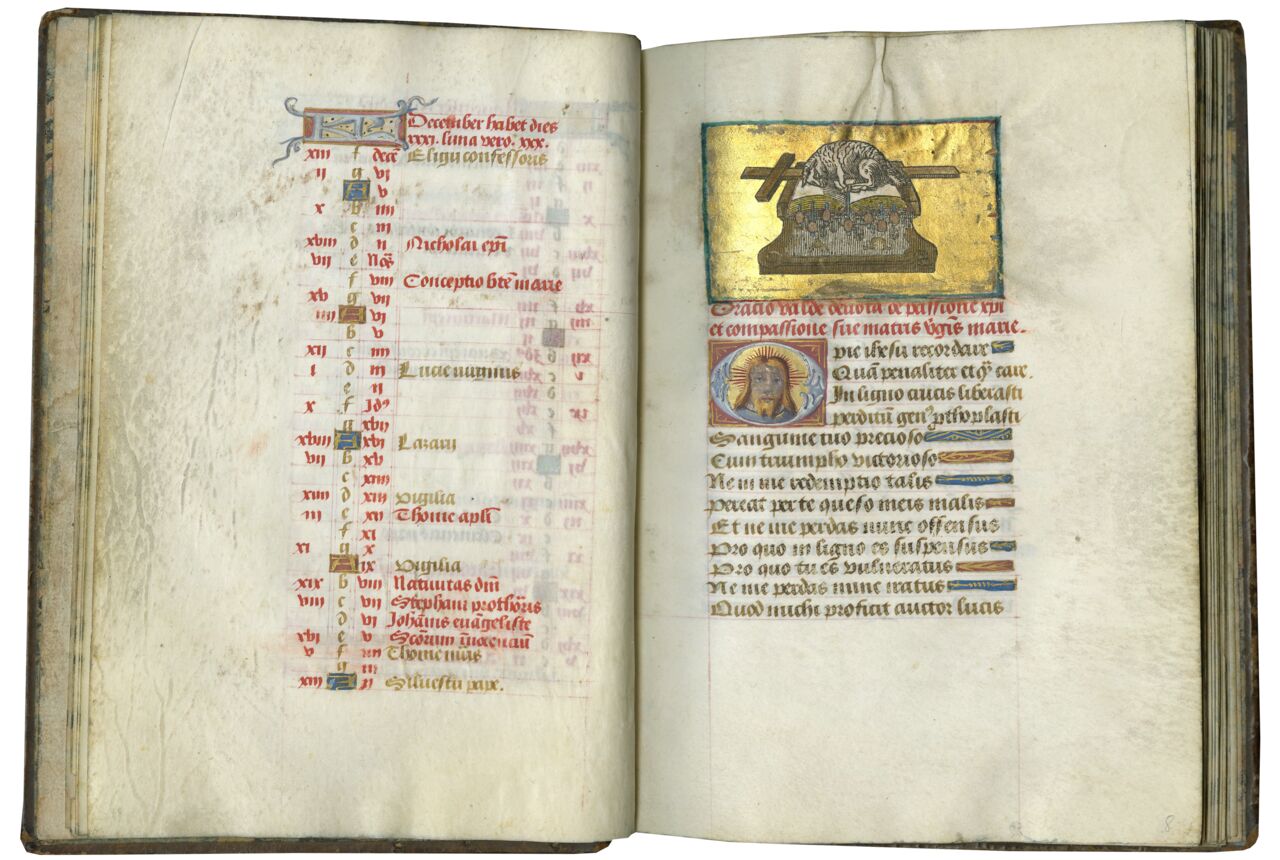 KL December habet dies
xxxi. luna vero. xxx.
xiii f decē Eligii confessoris
ii g vi
A v
x b iiii
c iii
xviii d ii Nicholai epī
vii e Noās
f viii Conceptio btē marie
xv g vii
iiii A vi
b v
xii c iiii
i d iii Lucie virginis
e ii
x f Idꝰ
g xvii
xviii A xvi Lazarii
vii b xv
c xiiii
xiiii d xiii Vigilia
iii e xii Thome apłi
f xi
xi g x
A ix Vigilia
xix b viii Nativitas dm̄
viii c vii Stephani prothom̄ris
d vi Johānis euāgeliste
xvi e v Scōrum īnocenciū
v f iiii Thome
g iii
xiii A ii Silvestri pape.
Oracio valde devota de passione xpi
et compassione sue matris v̄gīs marie.
O pie ihesu recordare
Quā penaliter et qͣ care.
In ligno crucis liberasti
perditū genꝰ ꝓthoplasti
Sanguine tuo precioso
Cum triumpho victorioso
Ne in me redemptio talis
Pereat per te queso meis malis
Et ne me perdas nunc offensus
Pro quo in ligno es suspensus
Pro quo tu es vulneratus
Ne me perdas nunc iratus
Quod michi proficit auctor lucis
8